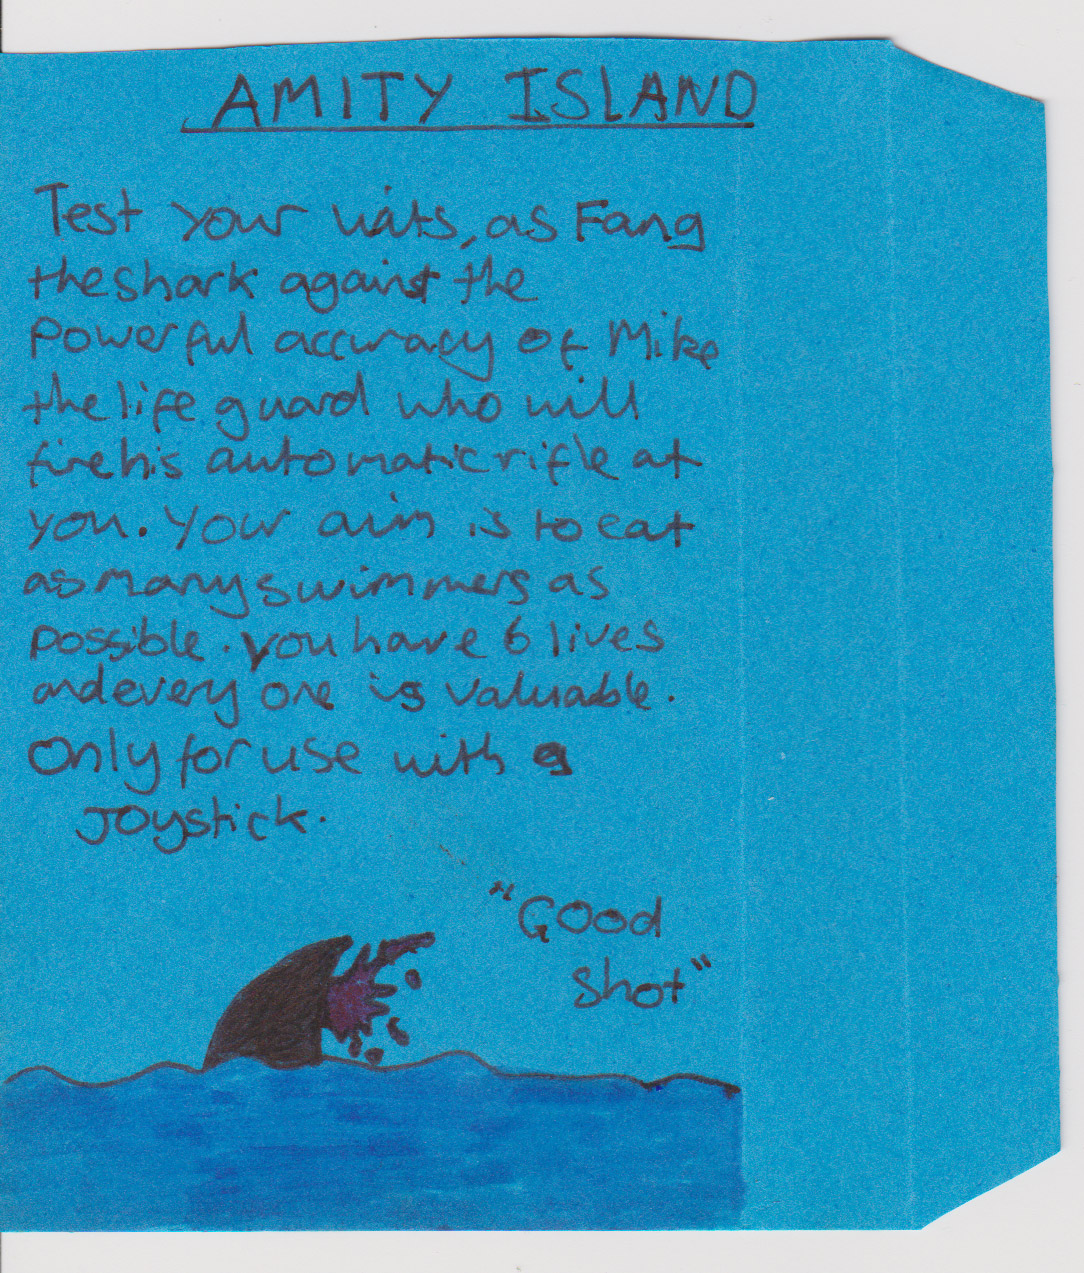 AMITY ISLAND
Test your wits, as Fang
the shark against the
powerful accuracy of Mike
the life guard who will
fire his automatic rifle at
you. Your aim is to eat
as many swimmers as
possible. you have 6 lives
and every one is valuable.
Only for use with a
Joystick.
"Good
shot"